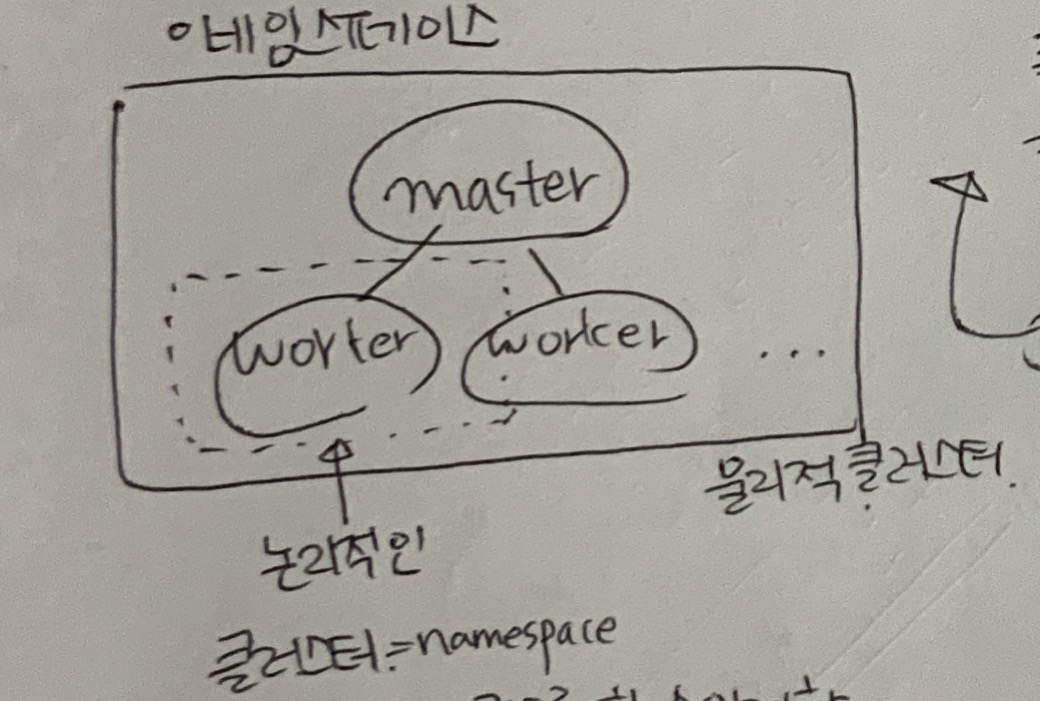 네임스페이스
master
worker worker ...
물리적 클러스터.
논리적인
클러스터=namespace